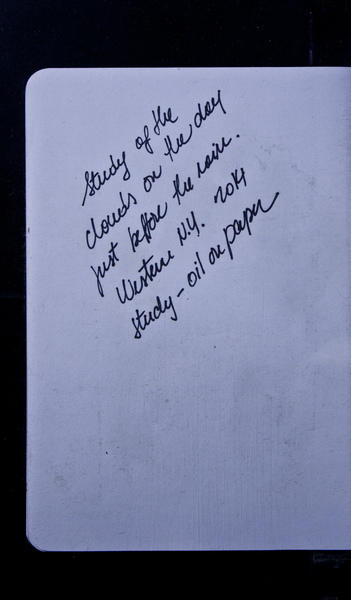 Study of the
clouds on the day
just before the rain.
Western N.Y. 2014
study - oil on paper